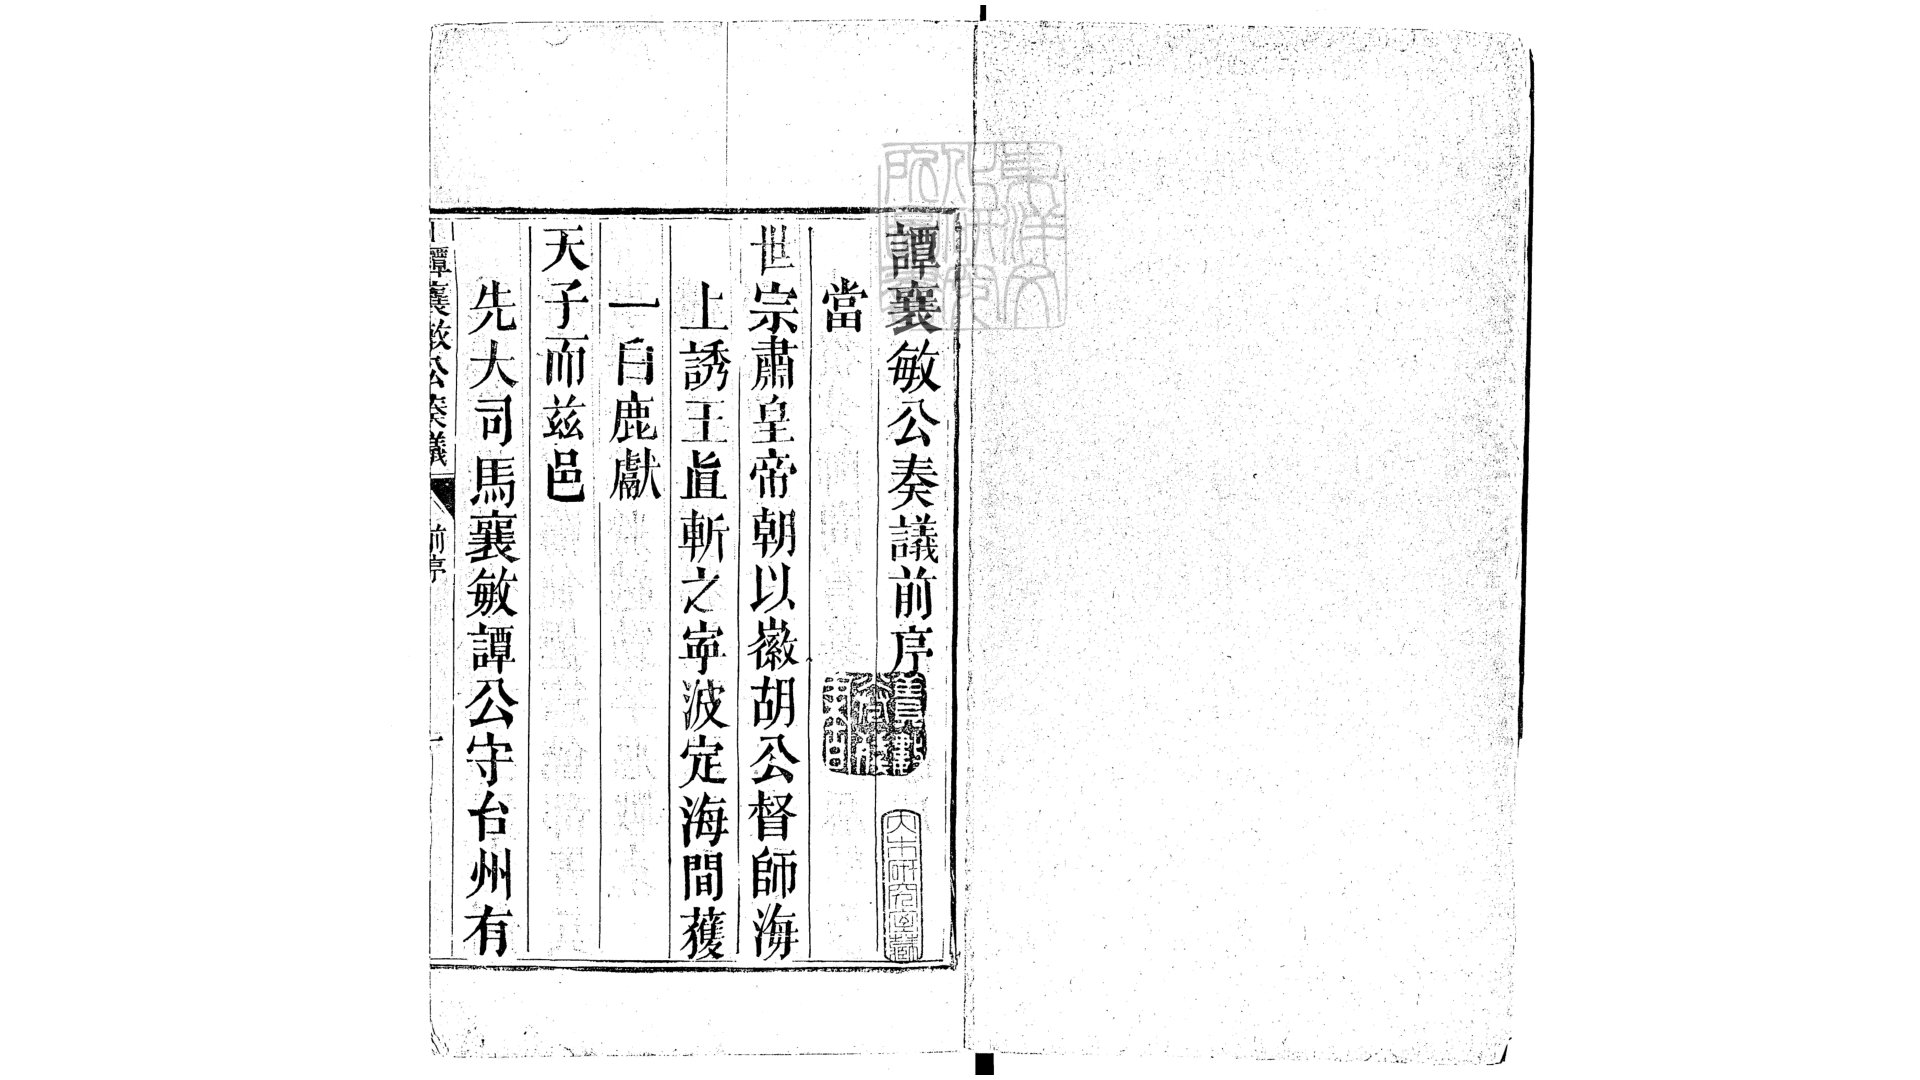 譚襄敏公奏議前序
當
世宗肅皇帝朝以徽胡公督師海
上誘王直斬之寧波定海間獲
一白鹿獻
天子而兹邑
先大司馬襄敏譚公守台州有
譚襄敏公奏議
前序
一
大木研究室藏